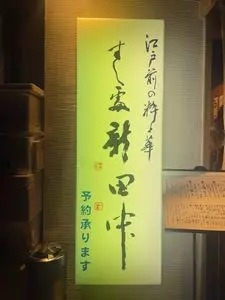 江戸前の粋と華
すし處新田中
予約承ります